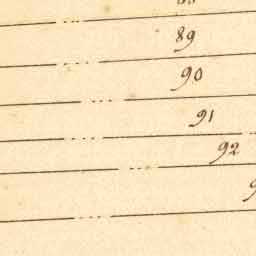 89
90
91
92